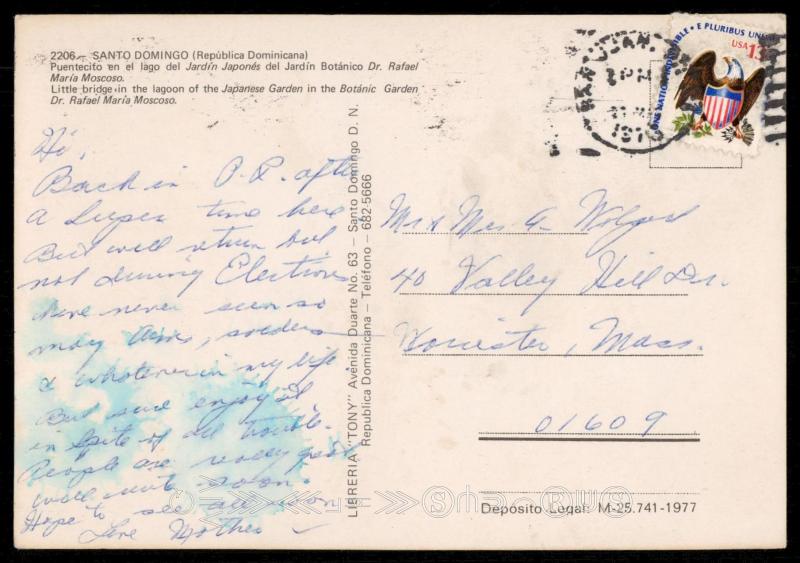 2206 - SANTO DOMINGO (República Dominicana)
Puentecito en el lago del Jardín Japonés del Jardín Botánico Dr. Rafael
María Moscoso.
Little bridge in the lagoon of the Japanese Garden in the Botánic Garden
Dr. Rafael María Moscoso.
Hi,
Back in P.R. after
a Super time here
But will return but
not during Elections
have never seen so
many Arms, soldiers
& whatever in my life
But sure enjoy it
in spite of all trouble.
People are really great
will write soon.
Hope to see all soon
Love Mother
LIBRERIA "TONY" Avenida Duarte No. 63 - Santo Domingo D. N.
Republica Dominicana - Teléfono - 682-5666
SAN JUAN,
PM
197
ONE NATION INDIVISIBLE • E PLURIBUS UNUM
USA 13
Mr & Mrs A
40 Valley Hill Dr.
Worcester, Mass.
01609
Depósito Legal: M-25.741-1977